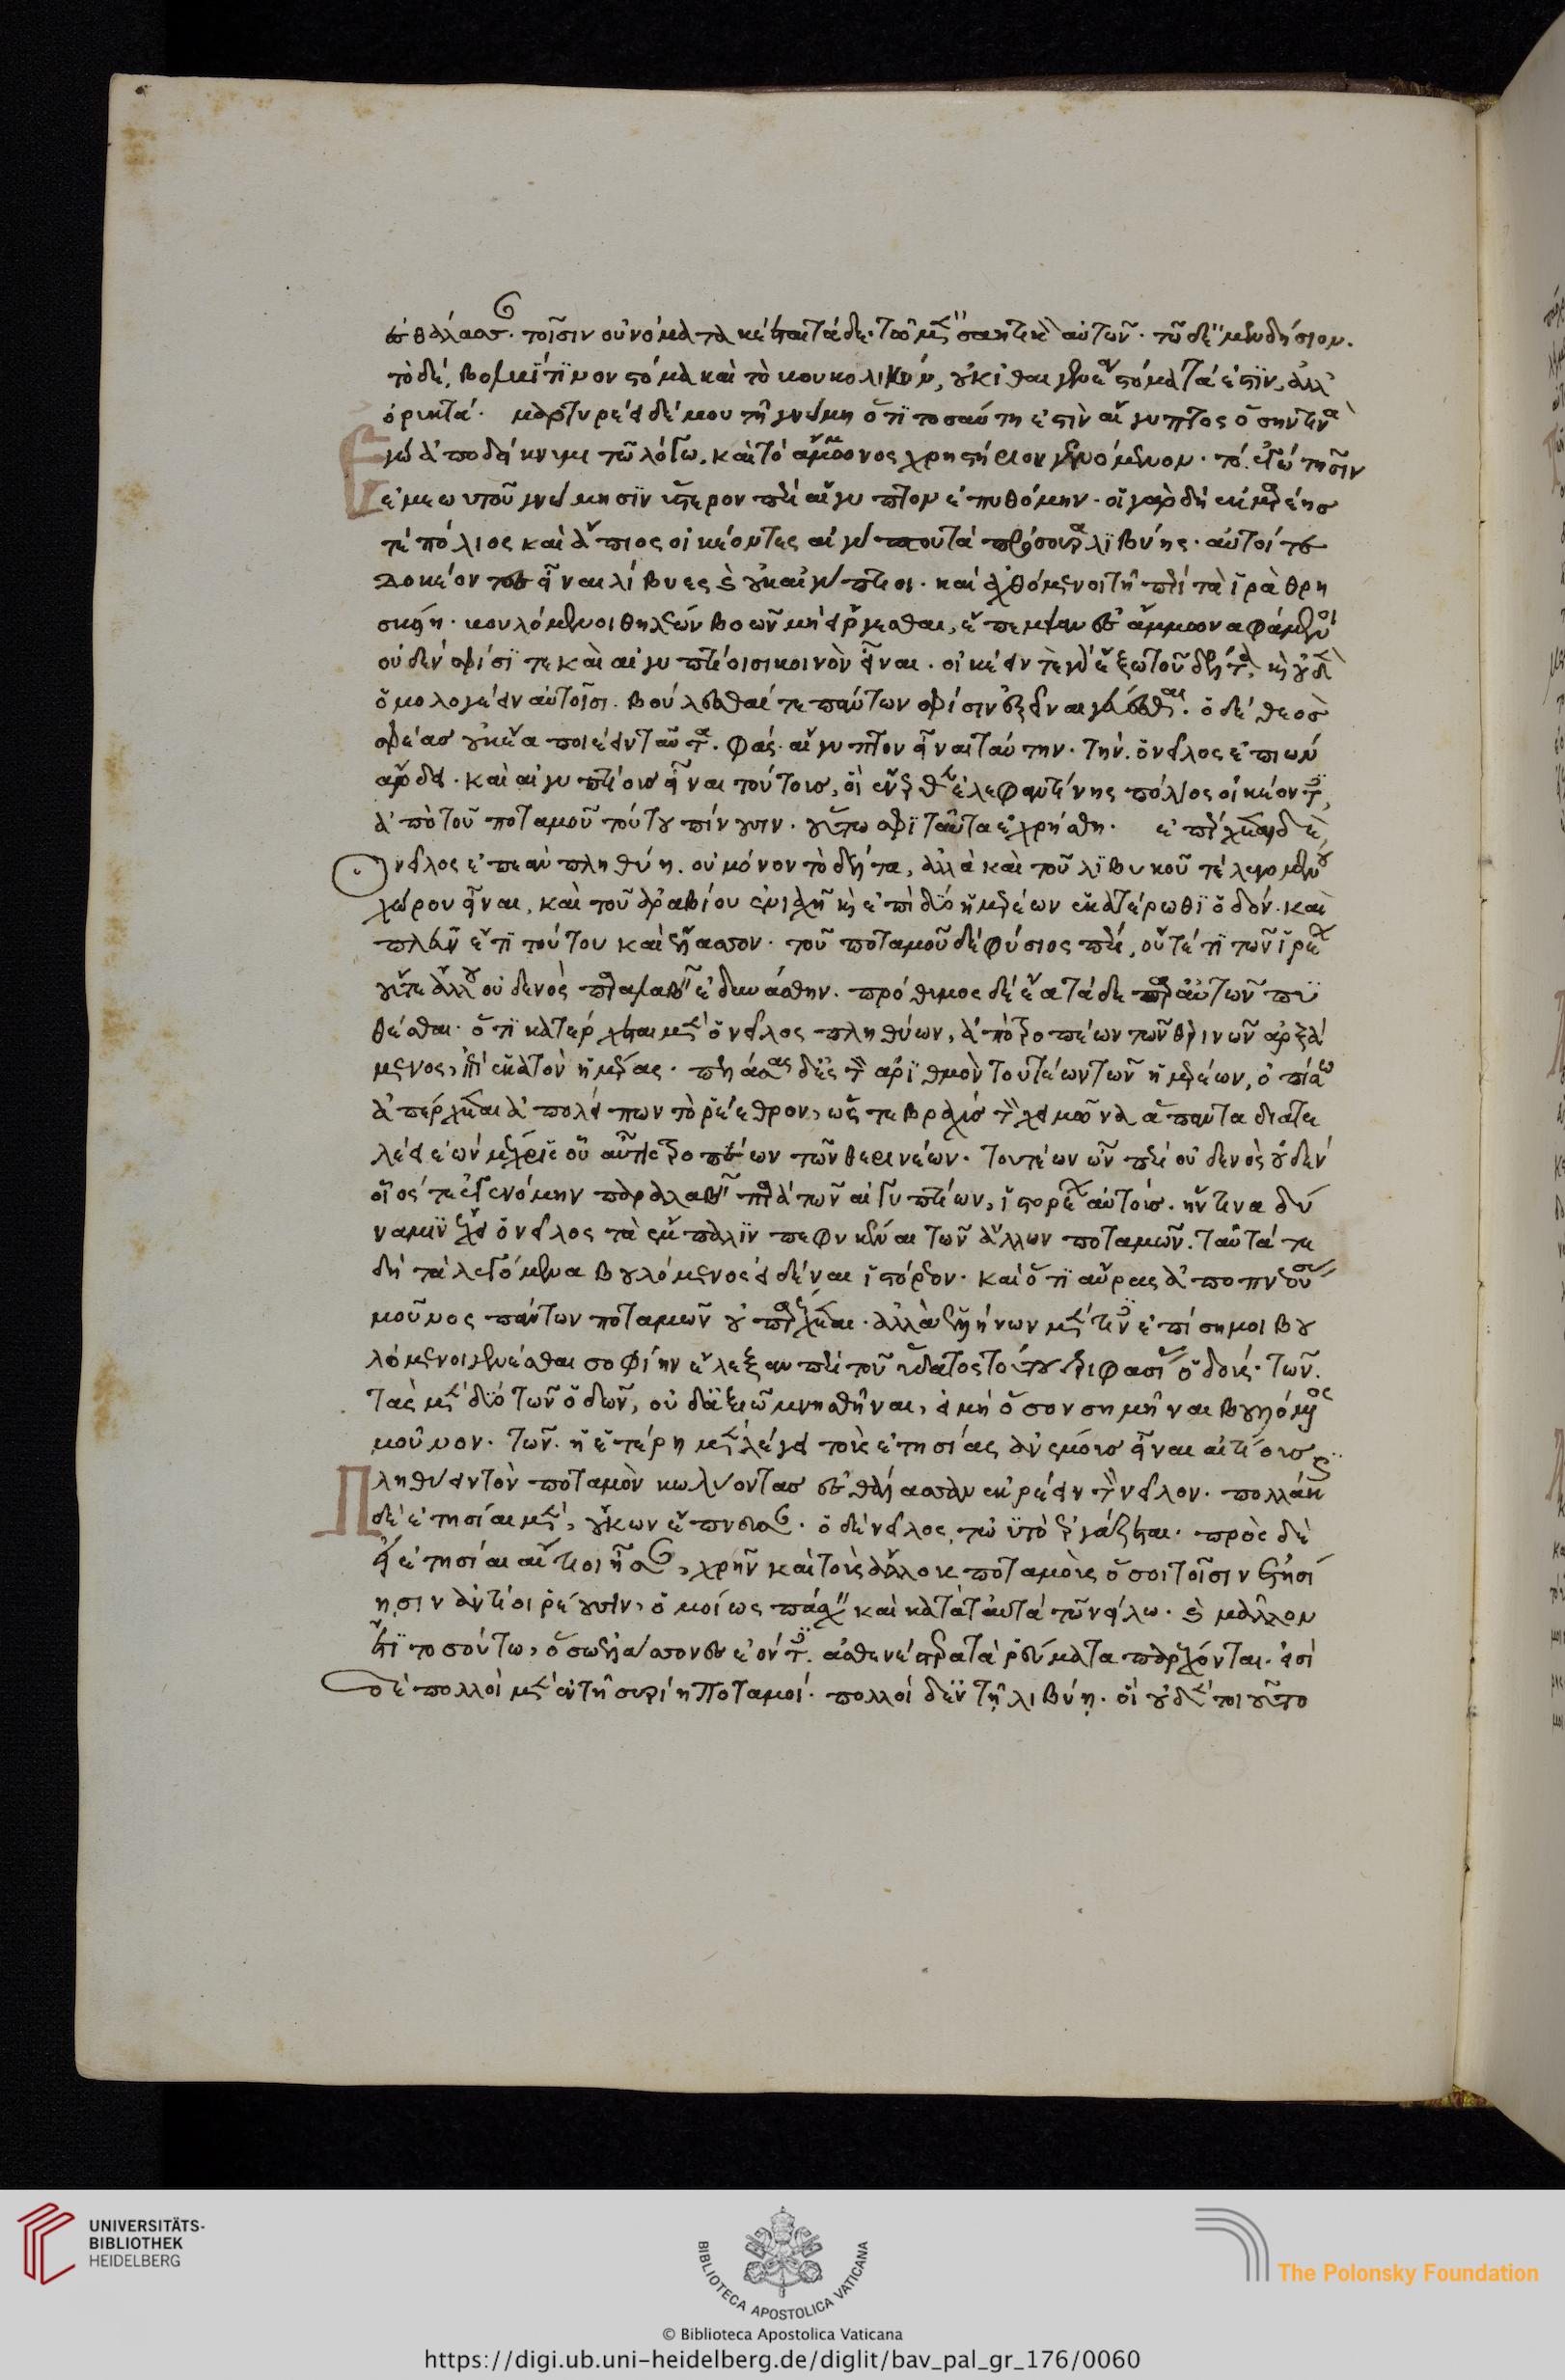 ἐς θάλασσαν. τοῖσιν οὐνόματα κέεται τάδε· τῶ μὲν σαητικὸν αὐτῶν· τῶ δὲ μενδήσιον.
τὸ δὲ, βολβίτινον στόμα καὶ τὸ βουκολικὸν, οὐκ ἰθαγενέα στόματά ἐστιν, ἀλλ'
ὀρυκτά. μαρτυρέει δέ μου τῆ γνώμη ὅτι τοσαύτη ἐστὶν αἴγυπτος ὅσην τινὰ
Ἐγὼ ἀποδείκνυμι τῶ λόγω. καὶ τὸ ἄμμωνος χρηστήριον γενόμενον· τὸ ἐγὼ τῆσιν
ἐμεωυτοῦ γνώμησιν ὕστερον περὶ αἴγυπτον ἐπυθόμην. οἱ γὰρ δὴ ἐκ μαρέης
τε πόλιος καὶ ἄπιος οἰκέοντες αἰγύπτου τὰ πρόσουρα λιβύης· αὐτοί τε
δοκέοντες εἶναι λίβυες καὶ οὐκ αἰγύπτιοι. καὶ ἀχθόμενοι τῆ περὶ τὰ ἱρὰ θρη
σκηίη. βουλόμενοι θηλέων βοῶν μὴ ἔργεσθαι, ἔπεμψαν ἐς ἄμμωνα φάμενοι
οὐδὲν σφίσι τε καὶ αἰγυπτίοισι κοινὸν εἶναι. οἰκέειν τε γὰρ ἔξω τοῦ δέλτα, καὶ οὐδὲν
ὁμολογέειν αὐτοῖσι. βούλεσθαί τε πάντων σφίσιν ἐξεῖναι γεύεσθαι. ὁ δὲ θεὸς
σφέας οὐκ ἔα ποιέειν ταῦτα. φὰς αἴγυπτον εἶναι ταύτην. τὴν ὁ νεῖλος ἐπιὼν
ἄρδει. καὶ αἰγυπτίους εἶναι τούτους, οἳ ἔνερθεν ἐλεφαντίνης πόλιος οἰκέοντες,
ἀπὸ τοῦ ποταμοῦ τούτου πίνουσιν. οὕτω σφι ταῦτα ἐχρήσθη. ἐπέρχεται δὲ,
Ὁ νεῖλος ἐπεὰν πληθύη. οὐ μόνον τὸ δέλτα, ἀλλὰ καὶ τοῦ λιβυκοῦ τε λεγομένου
χώρου εἶναι, καὶ τοῦ ἀραβίου ἐνιαχῆ καὶ ἐπὶ δύο ἡμερέων ἑκατέρωθι ὁδόν. καὶ
πλεῦν ἔτι τούτου καὶ ἔλασσον. τοῦ ποταμοῦ δὲ φύσιος πέρι, οὔτέ τι τῶν ἱρέων
οὔτε ἄλλου οὐδενὸς παραλαβεῖν ἐδυνάσθην. πρόθυμος δὲ ἔα τάδε παρ' αὐτῶν πυ
θέσθαι. ὅτι κατέρχεται μὲν ὁ νεῖλος πληθύων, ἀπὸ τροπέων τῶν θερινῶν ἀρξά
μενος, ἐπὶ ἑκατὸν ἡμέρας. πελάσας δὲ ἐς τὸν ἀριθμὸν τουτέων τῶν ἡμερέων, ὀπίσω
ἀπέρχεται ἀπολείπων τὸ ῥέεθρον, ὥστε βραχὺς τὸν χειμῶνα ἅπαντα διατε
λέει ἐὼν μέχρις οὗ αὖτις τροπέων τῶν θερινέων. τουτέων ὦν πέρι οὐδενὸς οὐδὲν
οἷός τε ἐγενόμην παραλαβεῖν παρὰ τῶν αἰγυπτίων, ἱστορέων αὐτοὺς. ἥντινα δύ
ναμιν ἔχει ὁ νεῖλος τὰ ἔμπαλιν πεφυκέναι τῶν ἄλλων ποταμῶν. ταῦτά τε
δὴ τὰ λεγόμενα βουλόμενος εἰδέναι ἱστόρεον. καὶ ὅτι αὔρας ἀποπνεούσας
μοῦνος πάντων ποταμῶν οὐ παρέχεται. ἀλλὰ ἑλλήνων μέν τινες ἐπίσημοι βου
λόμενοι γενέσθαι σοφίην ἔλεξαν περὶ τοῦ ὕδατος τούτου τριφασίας ὁδούς. τῶν.
τὰς μὲν δύο τῶν ὁδῶν, οὐδ' ἀξιῶ μνησθῆναι, εἰ μὴ ὅσον σημῆναι βουλόμενος
μοῦνον. τῶν. ἡ ἑτέρη μὲν λέγει τοὺς ἐτησίας ἀνέμους εἶναι αἰτίους
Πληθύειν τὸν ποταμὸν κωλύοντας ἐς θάλασσαν ἐκρέειν τὸν νεῖλον. πολλάκις
δὲ ἐτησίαι μὲν, οὔκων ἔπνευσαν. ὁ δὲ νεῖλος, τὠυτὸ ἐργάζεται. πρὸς δὲ
εἰ ἐτησίαι αἴτιοι ἦσαν, χρῆν καὶ τοὺς ἄλλους ποταμοὺς ὅσοι τοῖσιν ἐτησί
ησιν ἀντίοι ῥέουσιν, ὁμοίως πάσχειν καὶ κατὰ ταὐτὰ τῶ νείλω. καὶ μᾶλλον
ἔτι τοσούτω, ὅσω ἐλάσσονες ἐόντες. ἀσθενέστερα τὰ ῥεύματα παρέχονται. εἰσὶ
δὲ πολλοὶ μὲν ἐν τῆ συρίη ποταμοί. πολλοὶ δὲ ἐν τῆ λιβύη. οἳ οὐδὲν τοιοῦτο
UNIVERSITÄTS-
BIBLIOTHEK
HEIDELBERG
BIBLIOTECA APOSTOLICA VATICANA
The Polonsky Foundation
© Biblioteca Apostolica Vaticana
https://digi.ub.uni-heidelberg.de/diglit/bav_pal_gr_176/0060